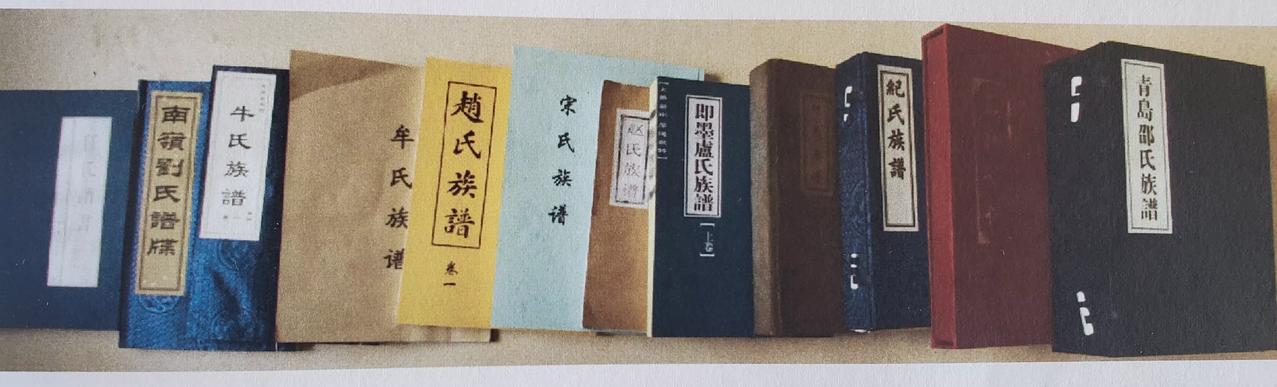 南嶺劉氏譜牒
牛氏族譜
牟氏族谱
趙氏族譜
卷一
宋氏族谱
赵氏族谱
即墨盧氏族譜
[上卷]
紀氏族譜
青島邵氏族譜